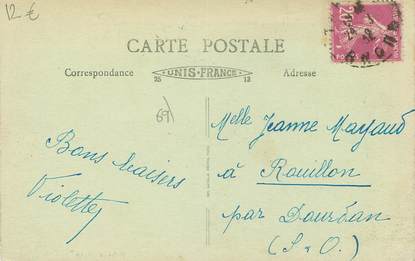 12 €
CARTE POSTALE
Correspondance
UNIS-FRANCE
25
13
Adresse
20c
69
Bons baisers
Violette
Melle Jeanne Mayaud
à Rouillon
par Dourdan
(S-O.)